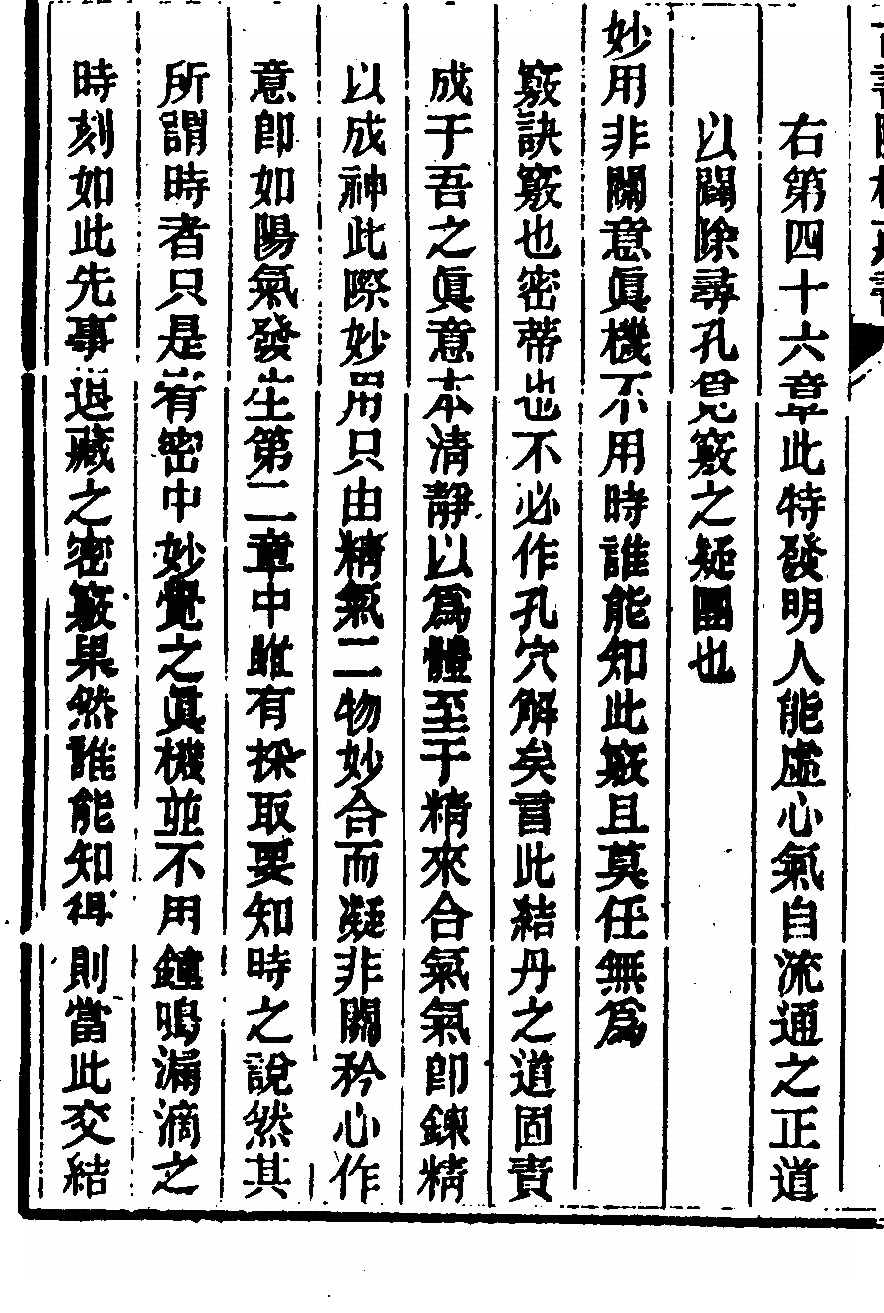 右第四十六章此特發明人能虛心氣自流通之正道
以闢除尋孔覓竅之疑團也
妙用非關意眞機不用時誰能知此竅且莫任無爲
竅訣竅也密蒂也不必作孔穴解矣言此結丹之道固責
成于吾之眞意本淸靜以爲體至于精來合氣氣卽鍊精
以成神此際妙用只由精氣二物妙合而凝非關矜心作
意卽如陽氣發生第二章中雖有採取要知時之說然其
所謂時者只是宥密中妙覺之眞機並不用鐘鳴漏滴之
時刻如此先事退藏之密竅果然誰能知得則當此交結